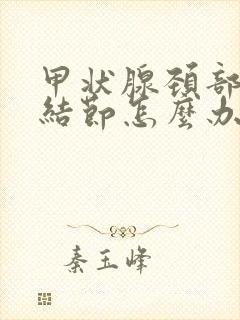 甲状腺颈部
結節怎麼办
秦玉峰